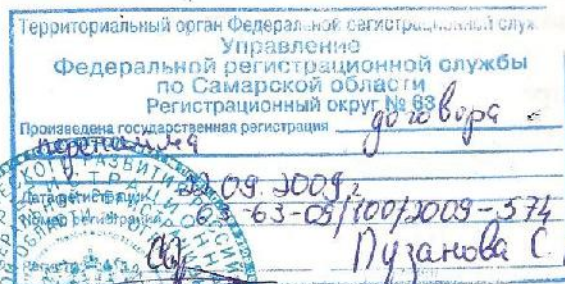 Территориальный орган Федеральной регистрационной служ
Управление
Федеральной регистрационной службы
по Самарской области
Регистрационный округ № 63
Произведена государственная регистрация договора
перенайма
Дата регистрации 22.09.2009 г
Номер регистрации 63-63-09/100/2009-574
Пузанова С.